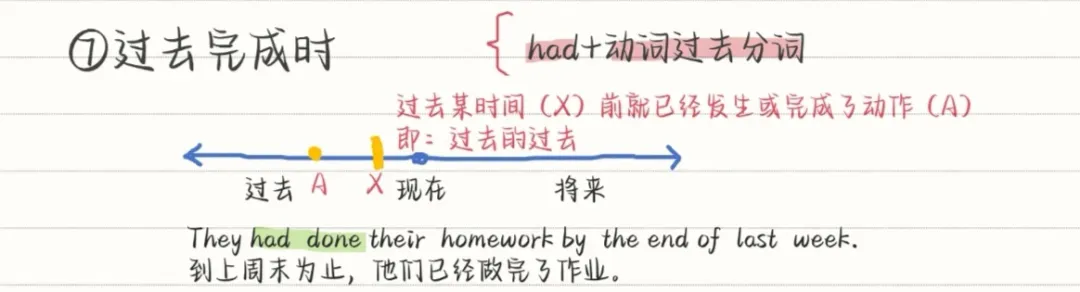 ⑦过去完成时
had+动词过去分词
过去某时间（X）前就已经发生或完成了动作（A）
即：过去的过去
过去 A X 现在 将来
They had done their homework by the end of last week.
到上周末为止，他们已经做完了作业。